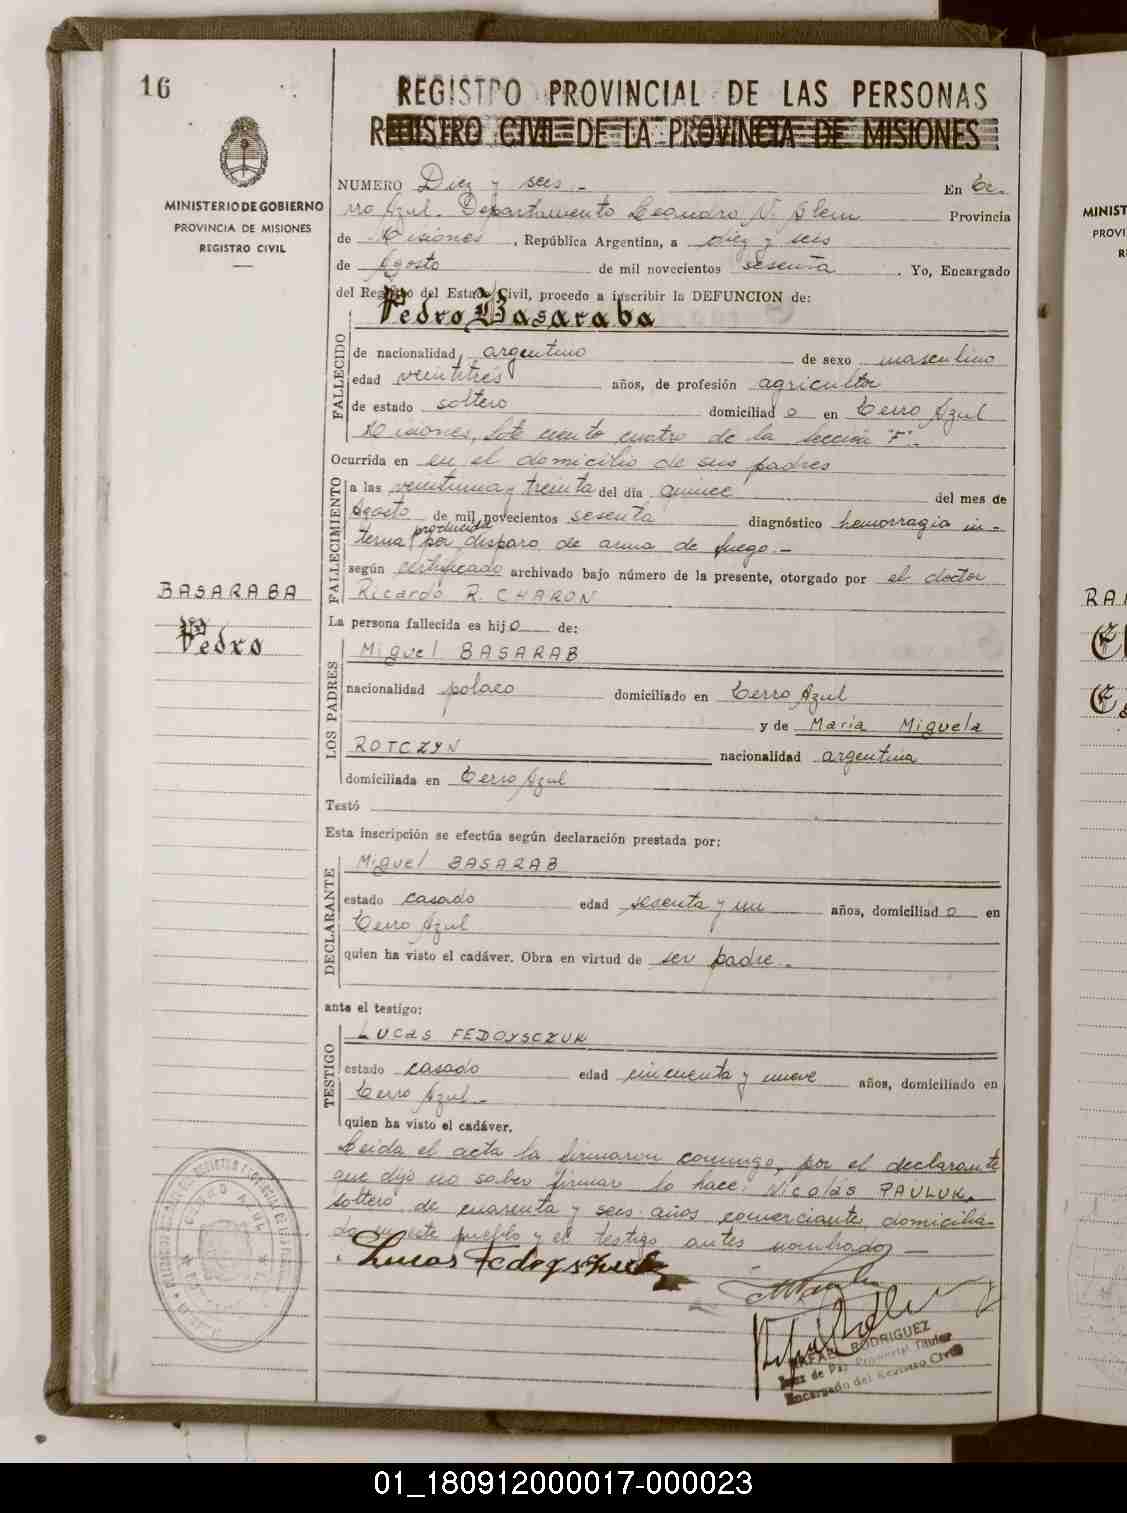 16
REGISTRO PROVINCIAL DE LAS PERSONAS
REGISTRO CIVIL DE LA PROVINCIA DE MISIONES
MINISTERIO DE GOBIERNO
PROVINCIA DE MISIONES
REGISTRO CIVIL
NUMERO Diez y seis.- En Ce-
rro Azul. Departamento Leandro N. Alem Provincia
de Misiones, República Argentina, a diez y seis
de Agosto de mil novecientos sesenta. Yo, Encargado
del Registro del Estado Civil, procedo a inscribir la DEFUNCION de:
Pedro Basaraba
FALLECIDO
de nacionalidad argentino de sexo masculino
edad veintitres años, de profesión agricultor
de estado soltero domiciliado en Cerro Azul
Misiones, lote ciento cuatro de la Sección "F".-
Ocurrida en en el domicilio de sus padres
FALLECIMIENTO
a las veintiuna y treinta del día quince del mes de
Agosto de mil novecientos sesenta diagnóstico hemorragia in-
terna producida por disparo de arma de fuego.-
según certificado archivado bajo número de la presente, otorgado por el doctor
Ricardo R. CHARON
BASARABA
Pedro
La persona fallecida es hijo de:
LOS PADRES
Miguel BASARAB
nacionalidad polaco domiciliado en Cerro Azul
y de Maria Miguela
ROTCZYN nacionalidad argentina
domiciliada en Cerro Azul
Testó
Esta inscripción se efectúa según declaración prestada por:
DECLARANTE
Miguel BASARAB
estado casado edad sesenta y un años, domiciliado en
Cerro Azul
quien ha visto el cadáver. Obra en virtud de ser padre.-
ante el testigo:
TESTIGO
Lucas FEDOYSCZUK
estado casado edad cincuenta y nueve años, domiciliado en
Cerro Azul.-
quien ha visto el cadáver.
Leida el acta la firmaron conmigo, por el declarante
que dijo no saber firmar lo hace: Nicolás PAULUK,
soltero, de cuarenta y seis años, comerciante, domicilia-
do en este pueblo y el testigo antes nombrado.-
Lucas
RAFAEL RODRIGUEZ
Juez de Paz Provincial Titular
Encargado del Registro Civil
CERRO AZUL
MINIST
PROVI
R
RA
01_180912000017-000023